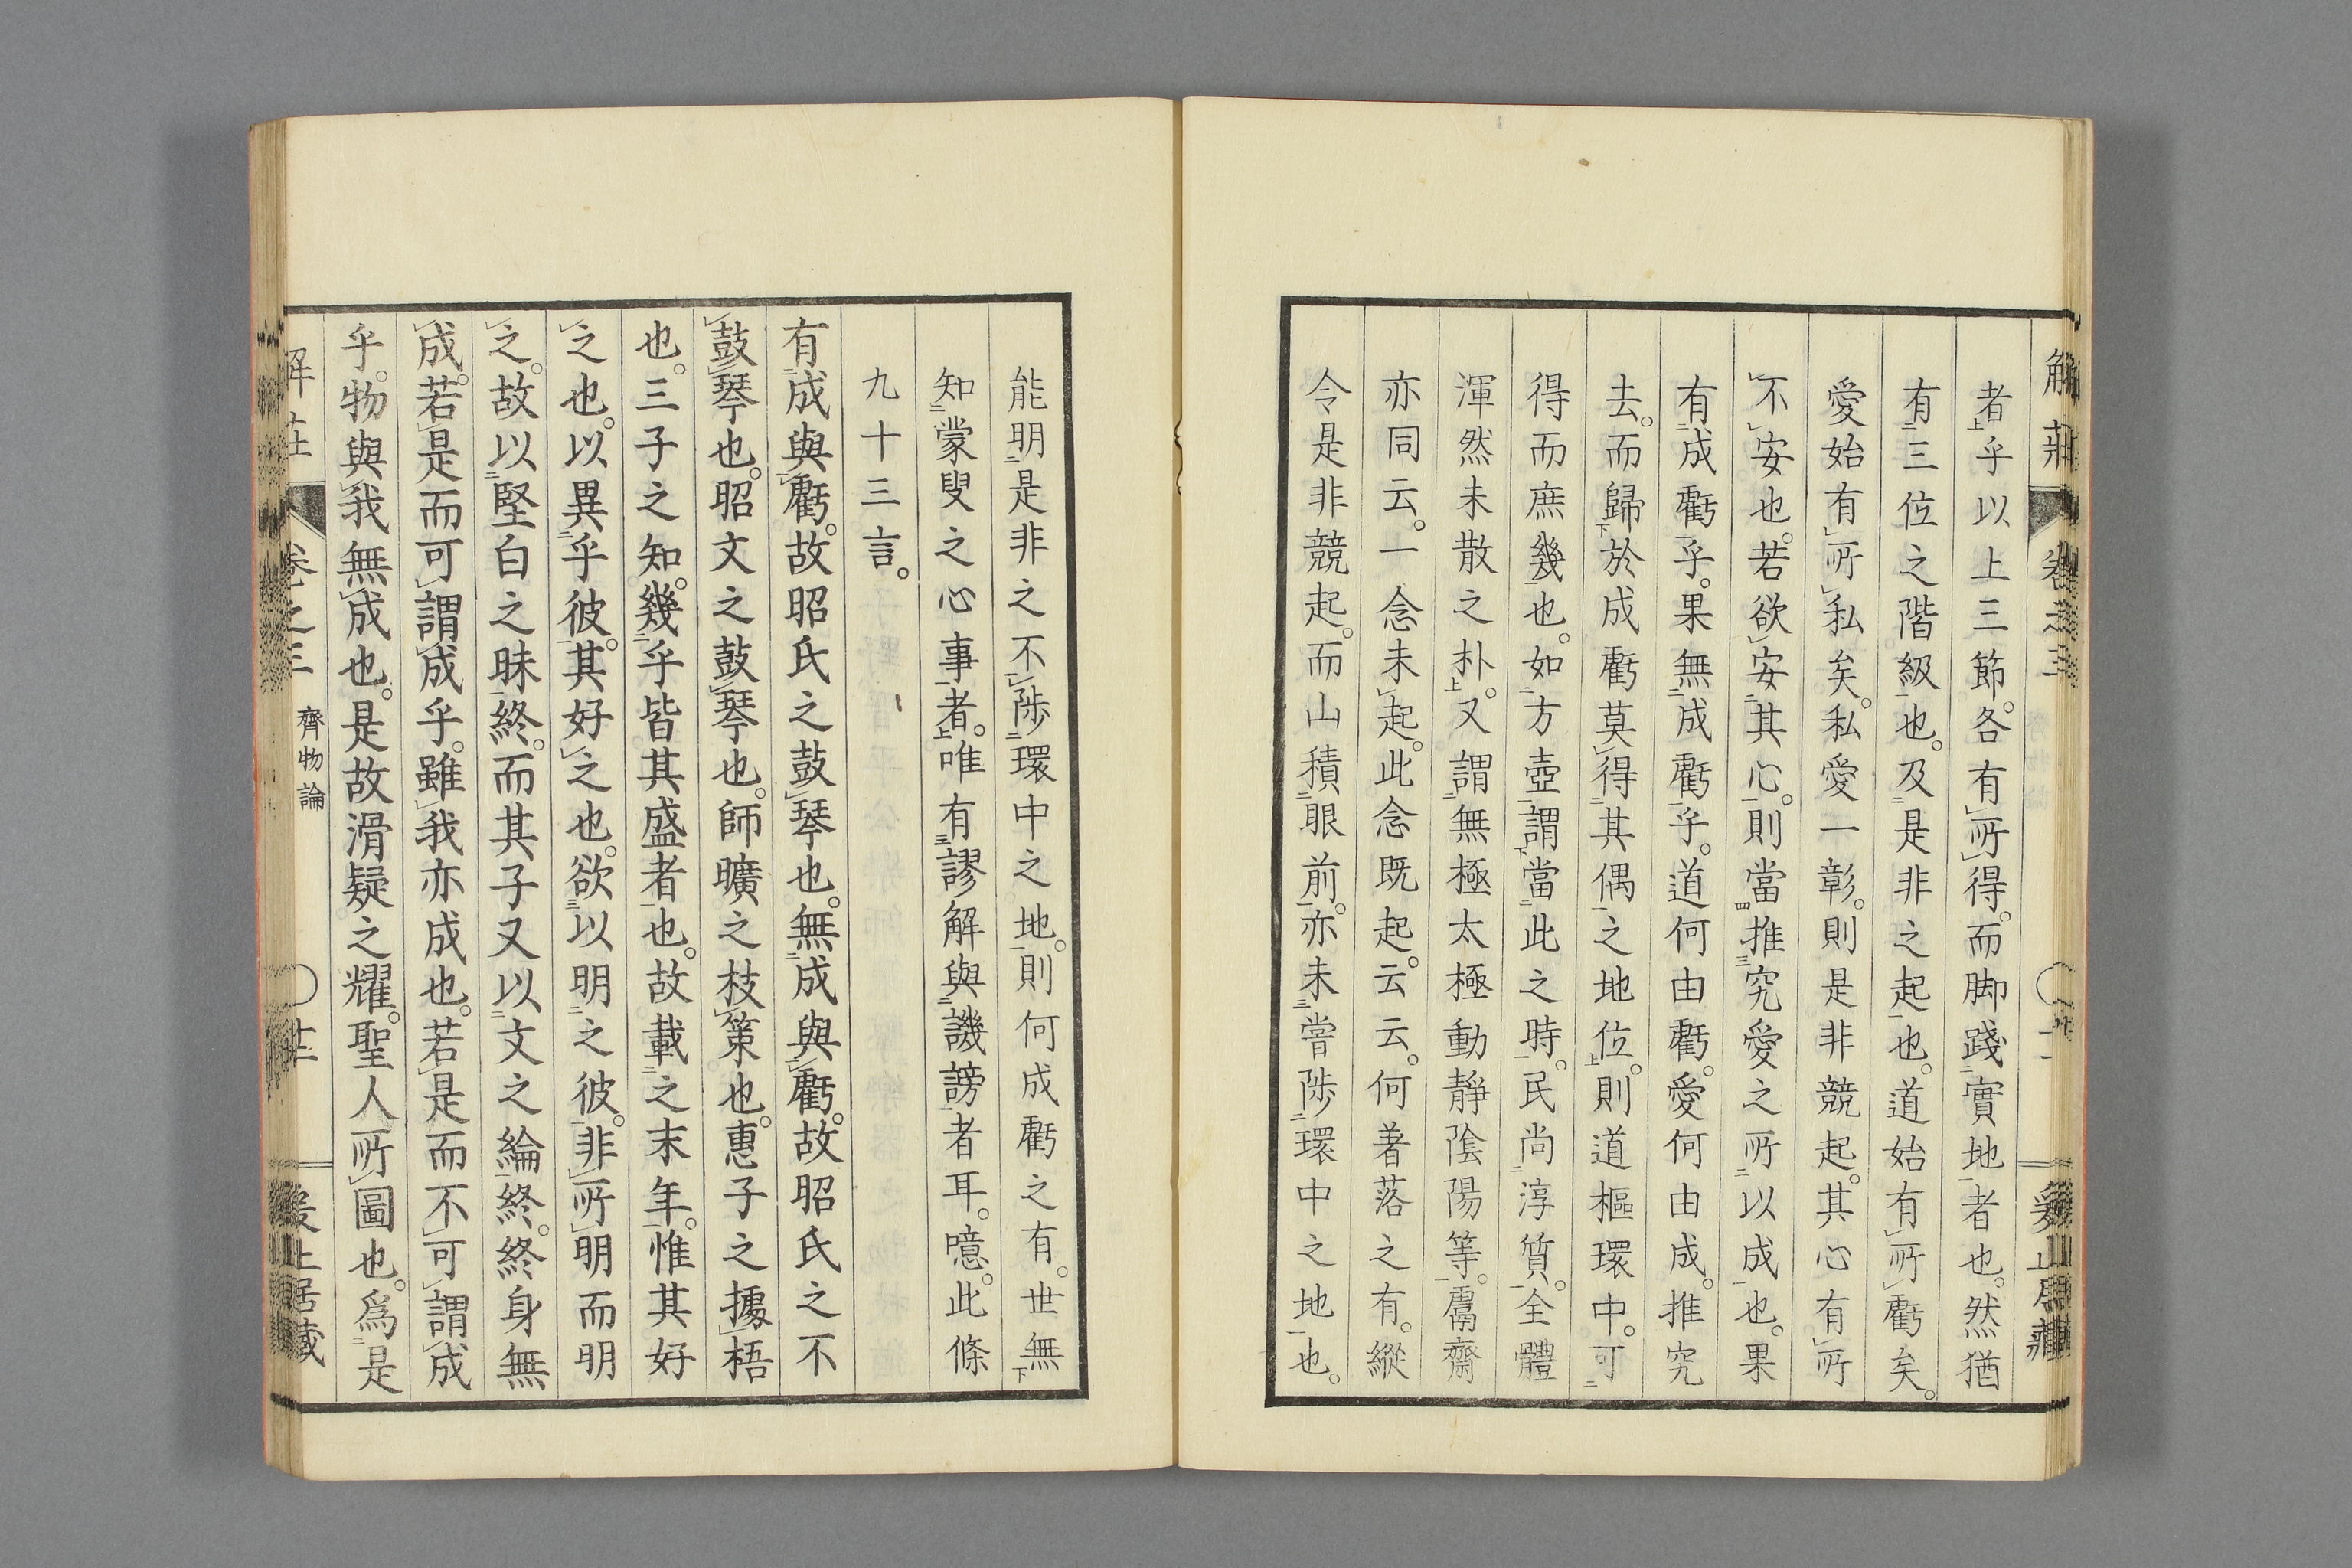 解莊 卷之三
者乎以上三節。各有所得。而脚踐實地者也。然猶
有三位之階級也。及是非之起也。道始有所虧矣。
愛始有所私矣。私愛一彰。則是非競起。其心有所
不安也。若欲安其心。則當推究愛之所以成也。果
有成虧乎。果無成虧乎。道何由虧。愛何由成。推究
去。而歸於成虧莫得其偶之地位。則道樞環中。可
得而庶幾也。如方壺謂當此之時。民尚淳質。全體
渾然未散之朴。又謂無極太極動靜陰陽等。鬳齋
亦同云。一念未起。此念既起。云云。何著落之有。縱
令是非競起。而山積眼前。亦未嘗陟環中之地也。
能明是非之不陟環中之地。則何成虧之有。世無
知蒙叟之心事者。唯有謬解與譏謗者耳。噫。此條
九十三言。
有成與虧。故昭氏之鼓琴也。無成與虧。故昭氏之不
鼓琴也。昭文之鼓琴也。師曠之枝策也。惠子之據梧
也。三子之知。幾乎皆其盛者也。故載之末年。惟其好
之也。以異乎彼。其好之也。欲以明之彼。非所明而明
之。故以堅白之昧終。而其子又以文之綸終。終身無
成。若是而可謂成乎。雖我亦成也。若是而不可謂成
乎。物與我無成也。是故滑疑之耀。聖人所圖也。爲是
解莊 卷之三 齊物論 〇 廿二